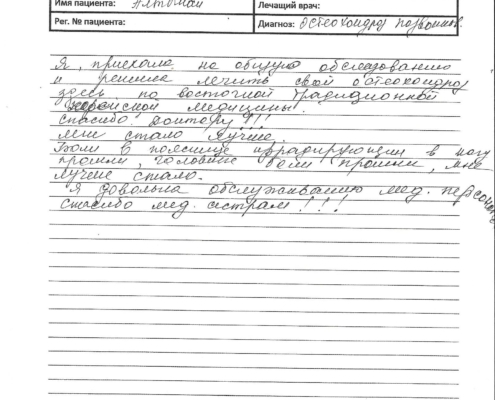 Имя пациента: Алтынай Лечащий врач:
Рег. № пациента: Диагноз: Остеохондроз позвоночн.
Я, приехала на общую обследованию
и решила лечить свой остеохондроз
здесь по восточной традиционной
корейской медицины.
Спасибо! доктору!!!
мне стало лучше.
Боли в пояснице иррадирующеи в ногу
прошли, головные боли прошли, мне
лучше стало.
Я довольна обслуживанию мед. персонала
Спасибо мед. сестрам!!!